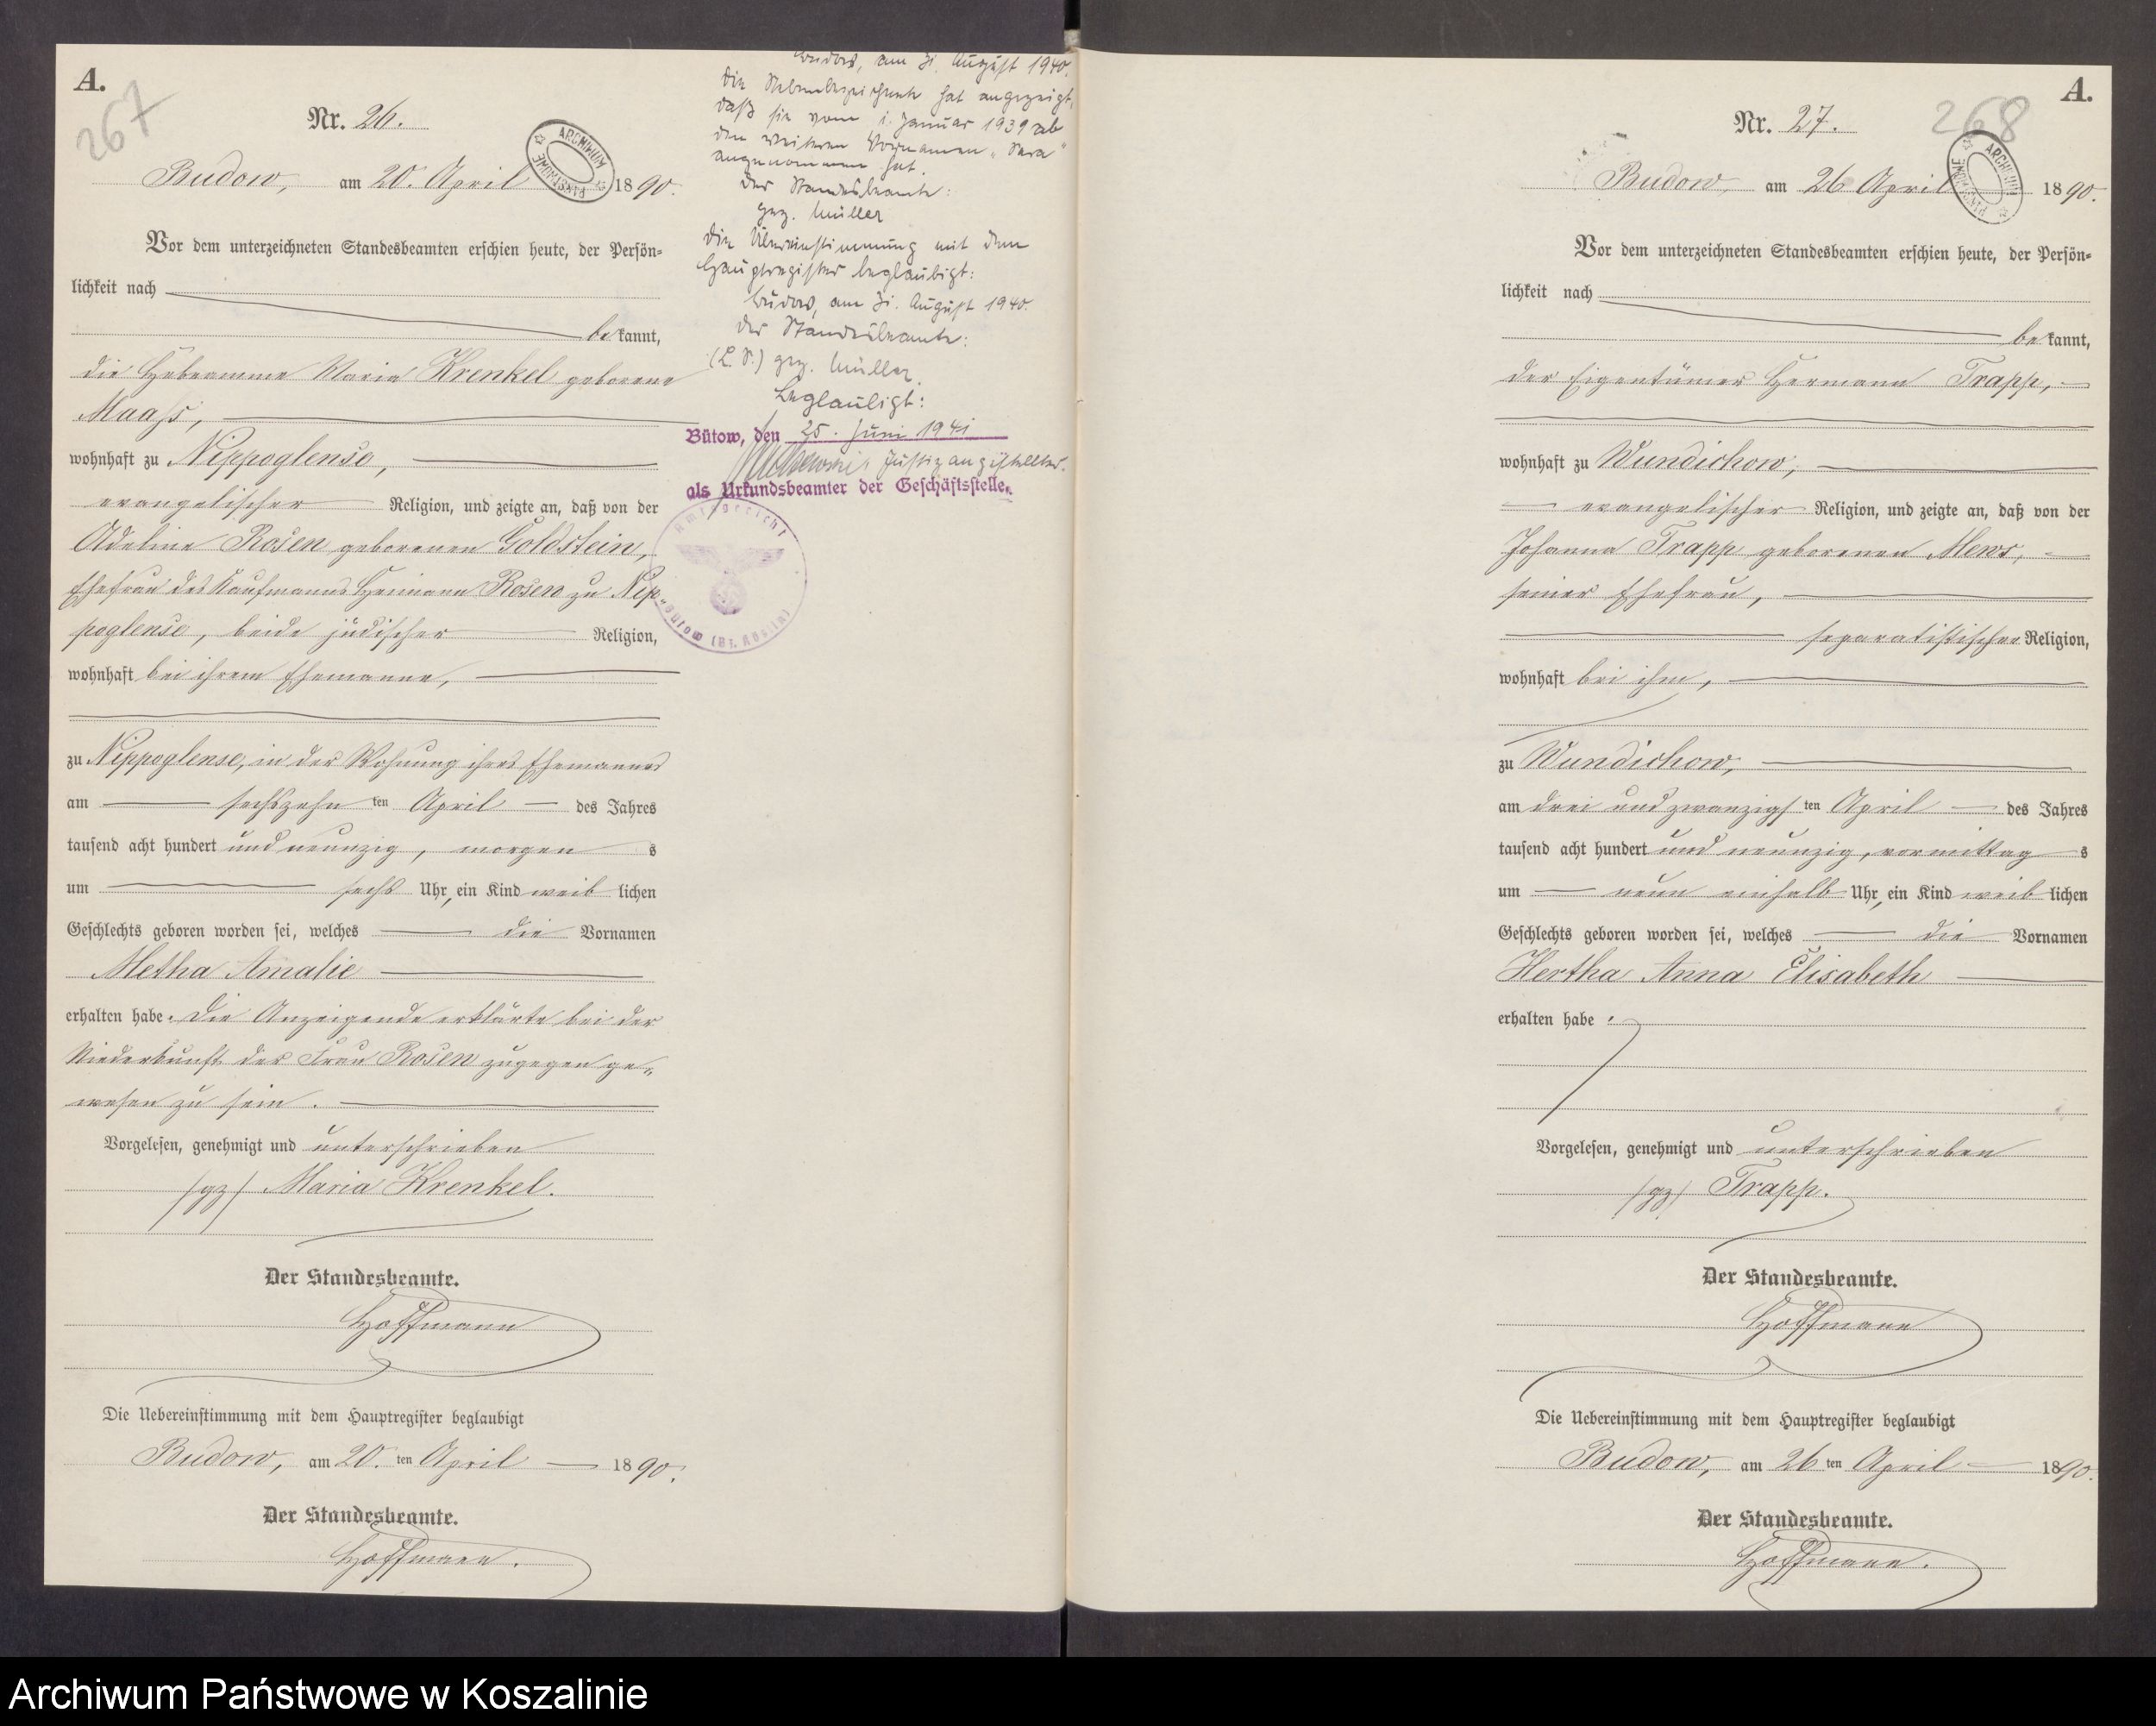 A.
267
Nr. 26.
Budow, am 20. April 1890.
ARCHIWUM PAŃSTWOWE
Vor dem unterzeichneten Standesbeamten erschien heute, der Persön-
lichkeit nach
bekannt,
die Hebeamme Maria Krenkel geborene
Maaß,
wohnhaft zu Nippoglense,
evangelischer Religion, und zeigte an, daß von der
Adeline Rosen geborenen Goldstein,
Ehefrau des Kaufmanns Heimann Rosen zu Nip-
poglense, beide jüdischer Religion,
wohnhaft bei ihrem Ehemanne,
zu Nippoglense, in der Wohnung ihres Ehemannes
am sechszehn ten April des Jahres
tausend acht hundert und neunzig, morgens
um sechs Uhr, ein Kind weiblichen
Geschlechts geboren worden sei, welches die Vornamen
Metha Amalie
erhalten habe. Die Anzeigende erklärte bei der
Niederkunft der Frau Rosen zugegen ge-
wesen zu sein.
Vorgelesen, genehmigt und unterschrieben
(gz) Maria Krenkel.
Der Standesbeamte.
Hoffmann
Die Uebereinstimmung mit dem Hauptregister beglaubigt
Budow, am 20. ten April 1890.
Der Standesbeamte.
Hoffmann.
Budow, am 31. August 1940.
Die Nebenbezeichnete hat angezeigt,
daß sie vom 1. Januar 1939 ab
den weiteren Vornamen „Sara"
angenommen hat.
Der Standesbeamte:
gez. Müller
Die Übereinstimmung mit dem
Hauptregister beglaubigt:
Budow, am 31. August 1940.
Der Standesbeamte:
(L. S.) gez. Müller.
Beglaubigt:
Bütow, den 25. Juni 1941
Justizangestellter.
als Urkundsbeamter der Geschäftsstelle.
Amtsgericht
Bütow (Bz. Köslin)
A.
268
Nr. 27.
Budow, am 26 April 1890.
ARCHIWUM PAŃSTWOWE
Vor dem unterzeichneten Standesbeamten erschien heute, der Persön-
lichkeit nach
bekannt,
der Eigentümer Hermann Trapp,
wohnhaft zu Wundichow,
evangelischer Religion, und zeigte an, daß von der
Johanna Trapp geborenen Mews,
seiner Ehefrau,
separatistischer Religion,
wohnhaft bei ihm,
zu Wundichow,
am drei und zwanzigs ten April des Jahres
tausend acht hundert und neunzig, vormittags
um neun einhalb Uhr, ein Kind weiblichen
Geschlechts geboren worden sei, welches die Vornamen
Hertha Anna Elisabeth
erhalten habe.
Vorgelesen, genehmigt und unterschrieben
(gz) Trapp.
Der Standesbeamte.
Hoffmann
Die Uebereinstimmung mit dem Hauptregister beglaubigt
Budow, am 26 ten April 1890.
Der Standesbeamte.
Hoffmann.
Archiwum Państwowe w Koszalinie